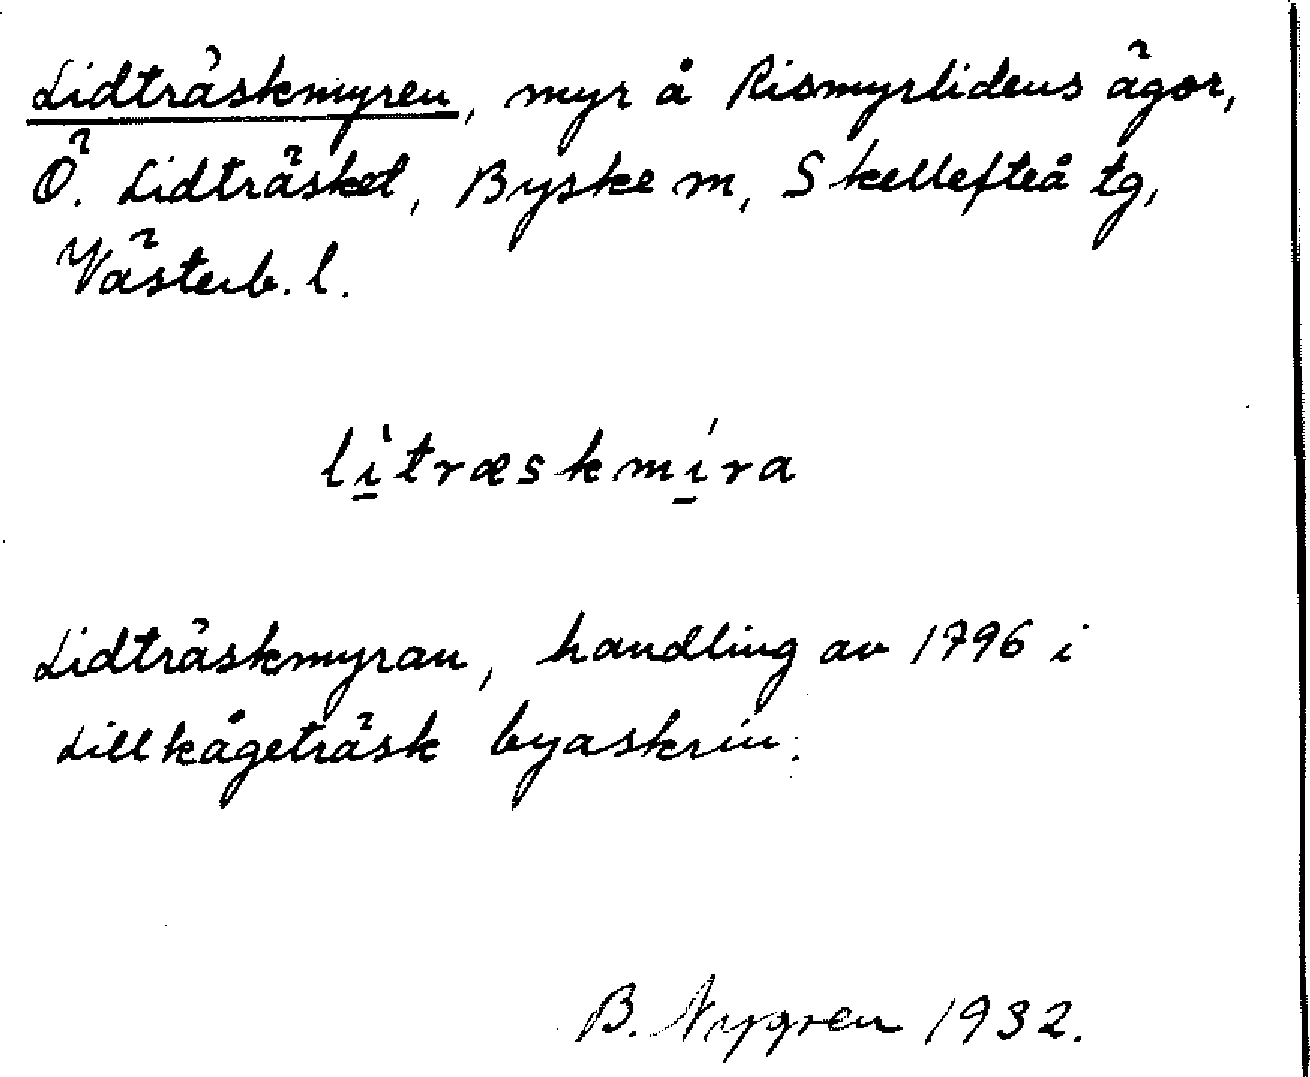 Lidträskmyren, myr å Rismyrlidens ägor,
Ö. Lidträsket, Byske sn, Skellefteå tg,
Västerb. l.
lìtræskmíra
Lidträskmyran, handling av 1796 i
Lillkågeträsk byaskrin.
B. Nygren 1932.